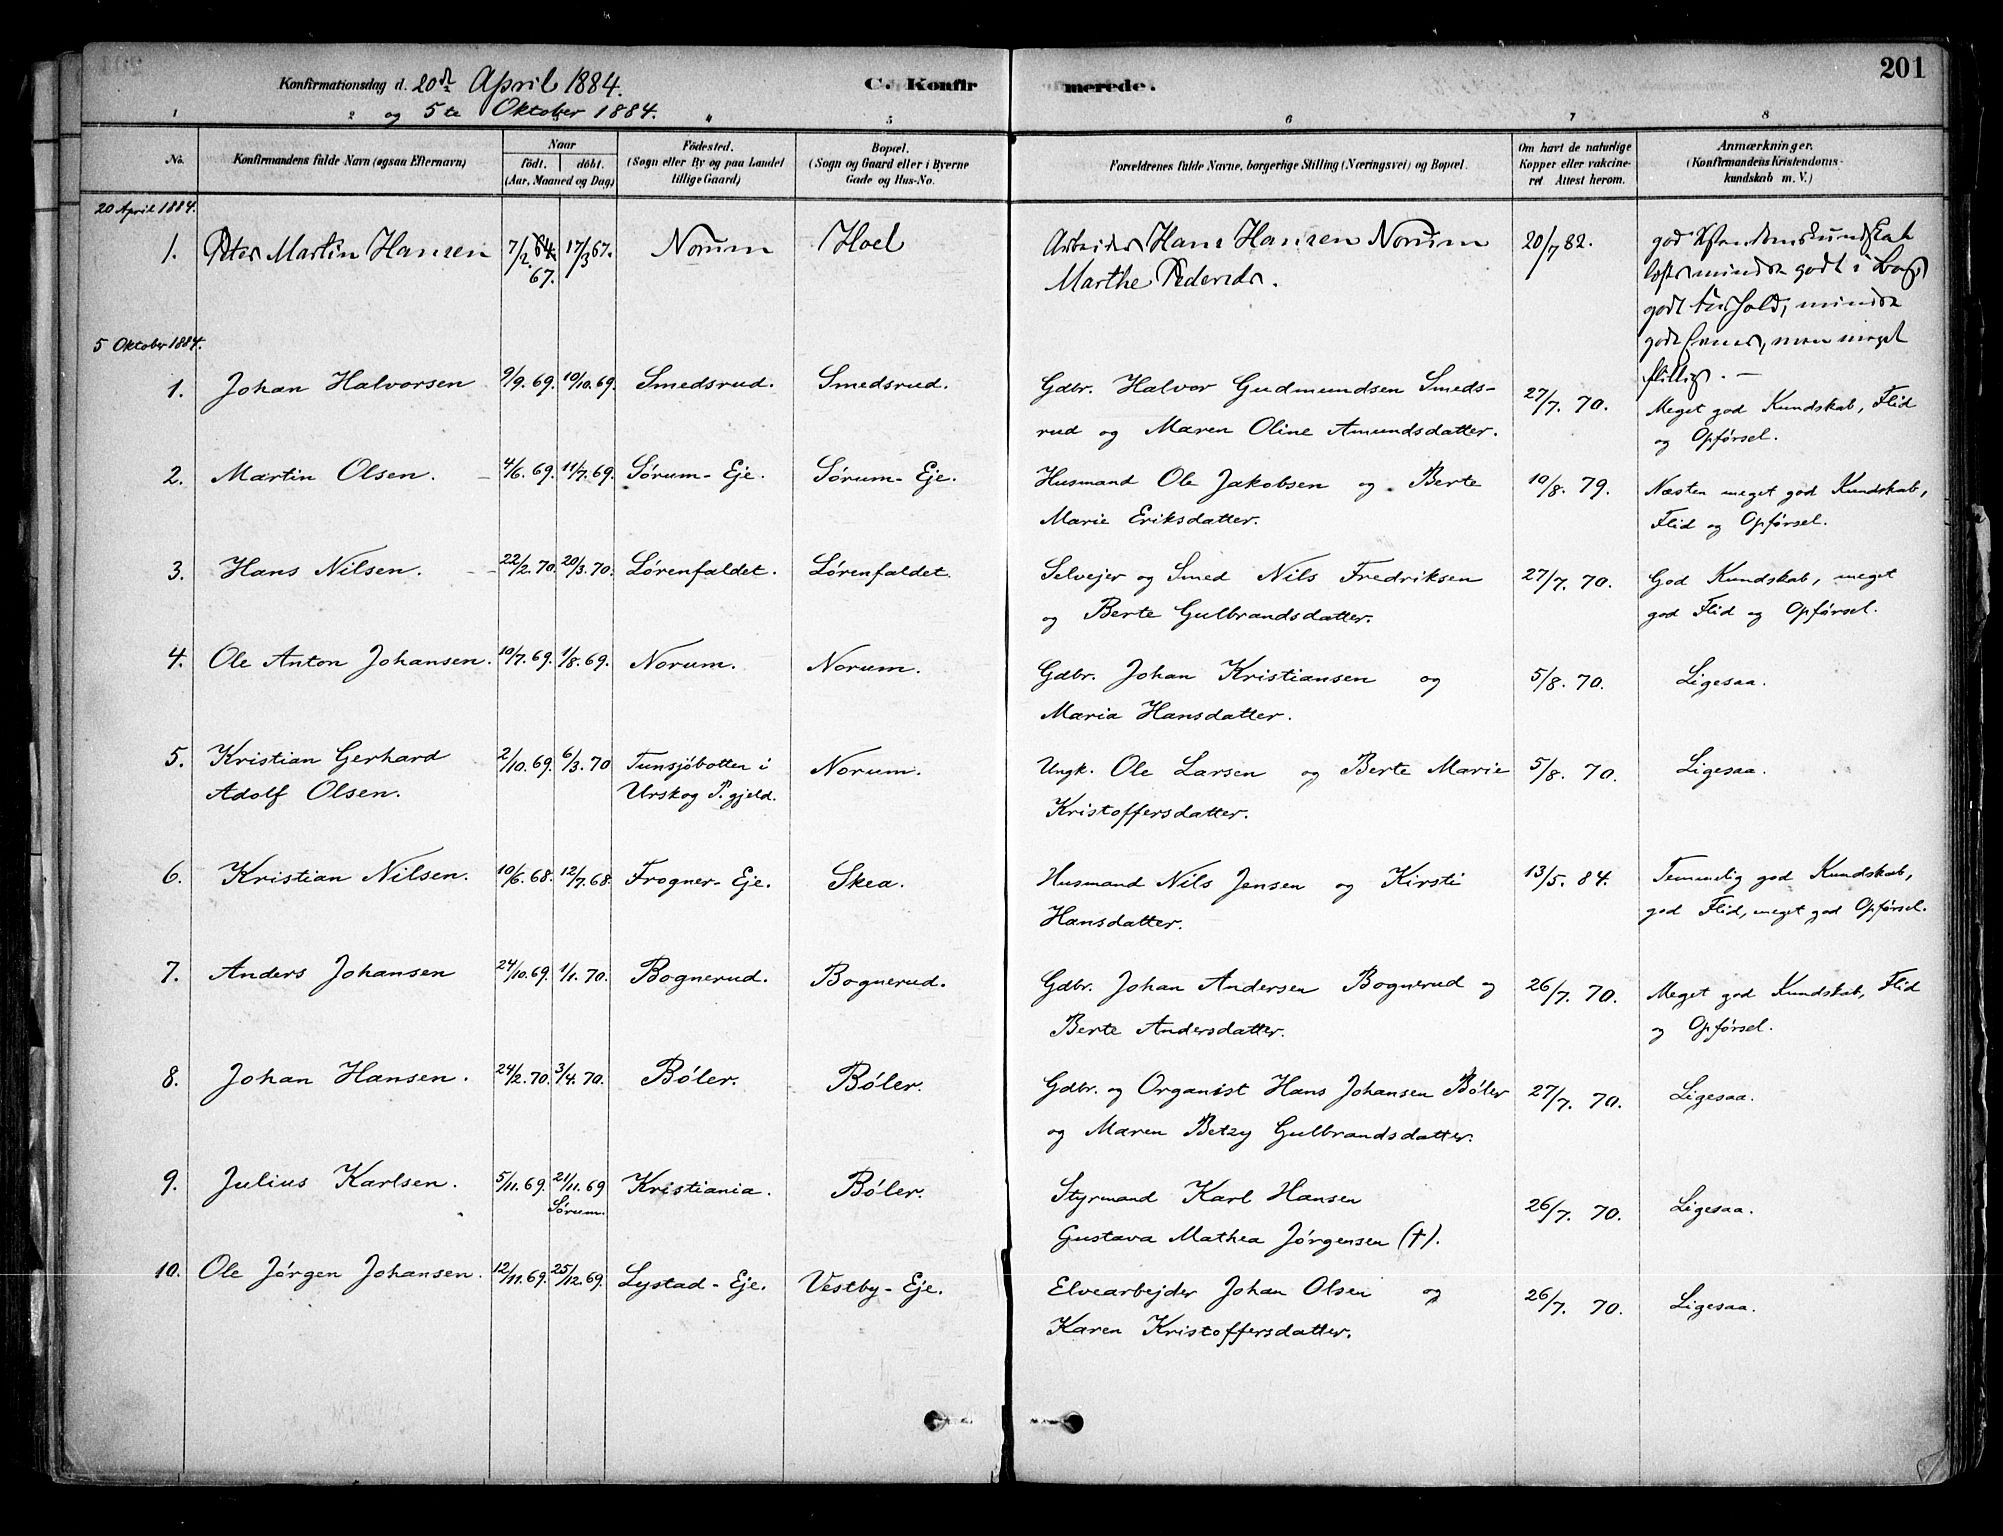 Konfirmationsdag d. 20de April 1884. C. Konfirmerede. 201
og 5te Oktober 1884.
1 2 3 4 5 6 7 8
No. Konfirmandens fulde Navn (ogsaa Efternavn) Naar født. døbt. (Aar, Maaned og Dag) Fødested. (Sogn eller By og paa Landet tillige Gaard) Bopæl. (Sogn og Gaard eller i Byerne Gade og Hus-No. Forældrenes fulde Navne, borgerlige Stilling (Næringsvei) og Bopæl. Om havt de naturlige Kopper eller vakcineret Attest herom. Anmærkninger. (Konfirmandens Kristendomskundskab m. V.)
20 April 1884.
1. Peter Martin Hansen 7/2. 64 67. 17/3 67. Norum Hoel Arbeider Hans Hansen Norum 20/7 82. god
Marthe Pedersd. mindre godt i
godt Forhold, mindre
gode, men meget
flittig. —
5 Oktober 1884.
1. Johan Halvorsen 9/9. 69. 10/10. 69. Smedsrud. Smedsrud. Gdbr. Halvor Gudmundsen Smeds- 27/7. 70. Meget god Kundskab, Flid
rud og Maren Oline Amundsdatter. og Opførsel.
2. Martin Olsen. 4/6. 69. 11/7. 69. Sørum-Eje. Sørum-Eje. Husmand Ole Jakobsen og Berte 10/8. 79. Næsten meget god Kundskab,
Marie Eriksdatter. Flid og Opførsel.
3. Hans Nilsen. 22/2. 70. 20/3. 70. Lørenfaldet. Lørenfaldet. Selvejer og Smed Nils Fredriksen 27/7. 70. God Kundskab, meget
og Berte Gulbrandsdatter. god Flid og Opførsel.
4. Ole Anton Johansen. 10/7. 69. 1/8. 69. Norum. Norum. Gdbr. Johan Kristiansen og 5/8. 70. Ligesaa.
Maria Hansdatter.
5. Kristian Gerhard 2/10. 69. 6/3. 70 Tunsjøbotten i Norum. Ungk. Ole Larsen og Berte Marie 5/8. 70. Ligesaa.
Adolf Olsen. Urskog P.gjeld. Kristoffersdatter.
6. Kristian Nilsen. 10/6. 68. 12/7. 68. Frogner-Eje. Skea. Husmand Nils Jensen og Kirsti 13/5. 84. Temmelig god Kundskab,
Hansdatter. god Flid, meget god Opførsel.
7. Anders Johansen 24/10. 69. 1/1. 70. Bognerud. Bognerud. Gdbr. Johan Andersen Bognerud og 26/7. 70. Meget god Kundskab, Flid
Berte Andersdatter. og Opførsel.
8. Johan Hansen. 24/2. 70. 3/4. 70. Bøler. Bøler. Gdbr. og Organist Hans Johansen Bøler 27/7. 70. Ligesaa.
og Maren Betzy Gulbrandsdatter.
9. Julius Karlsen. 5/11. 69. 21/11. 69 Kristiania. Bøler. Styrmand Karl Hansen 26/7. 70. Ligesaa.
Sørum. Gustava Mathea Jørgensen (†).
10. Ole Jørgen Johansen. 12/11. 69. 25/12. 69. Lystad-Eje. Vestby-Eje. Elvearbejder Johan Olsen og 26/7. 70. Ligesaa.
Karen Kristoffersdatter.